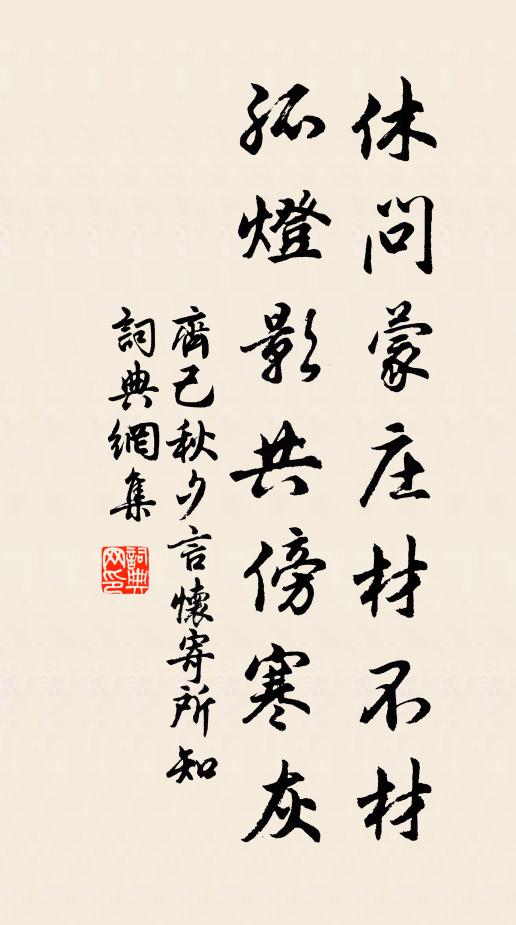 休问蒙庄材不材
孤燈影共傍寒灰
齊己秋夕言懷寄所知
詞典網集
詞典网印